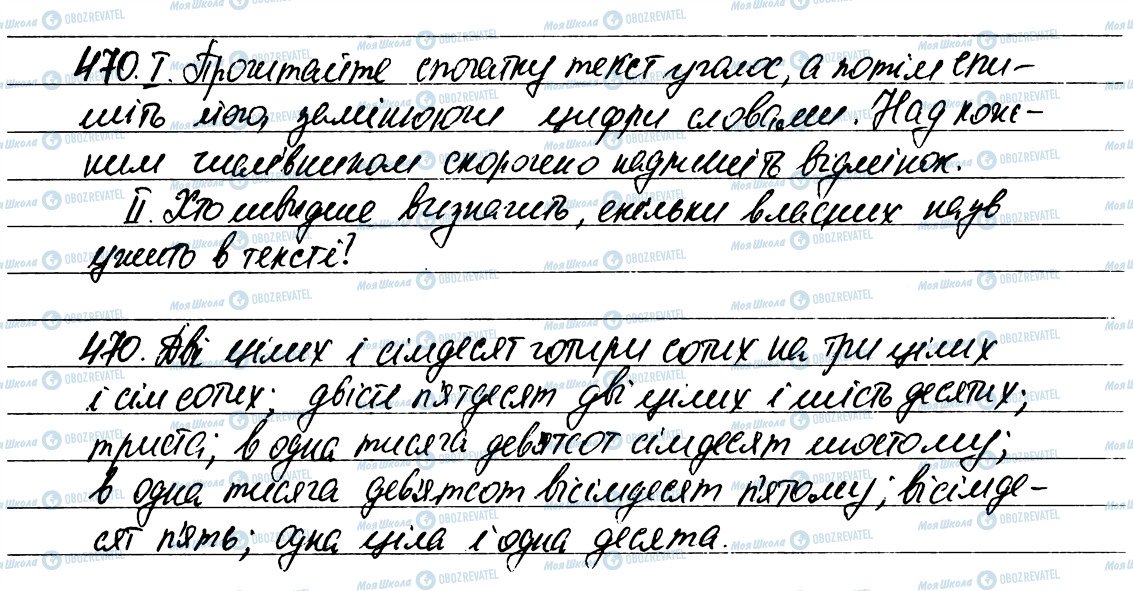 470. І. Прочитайте спочатку текст уголос, а потім спи-
шіть його, замінюючи цифри словами. Над кож-
ним числівником скорочено надпишіть відмінок.
ІІ. Хто швидше визначить, скільки власних назв
ужито в тексті?
470. Дві цілих і сімдесят чотири сотих на три цілих
і сім сотих; двісті п'ятдесят дві цілих і шість десятих;
триста; в одна тисяча дев'ятсот сімдесят шостому;
в одна тисяча дев'ятсот вісімдесят п'ятому; вісімде-
сят п'ять; одна ціла і одна десята.